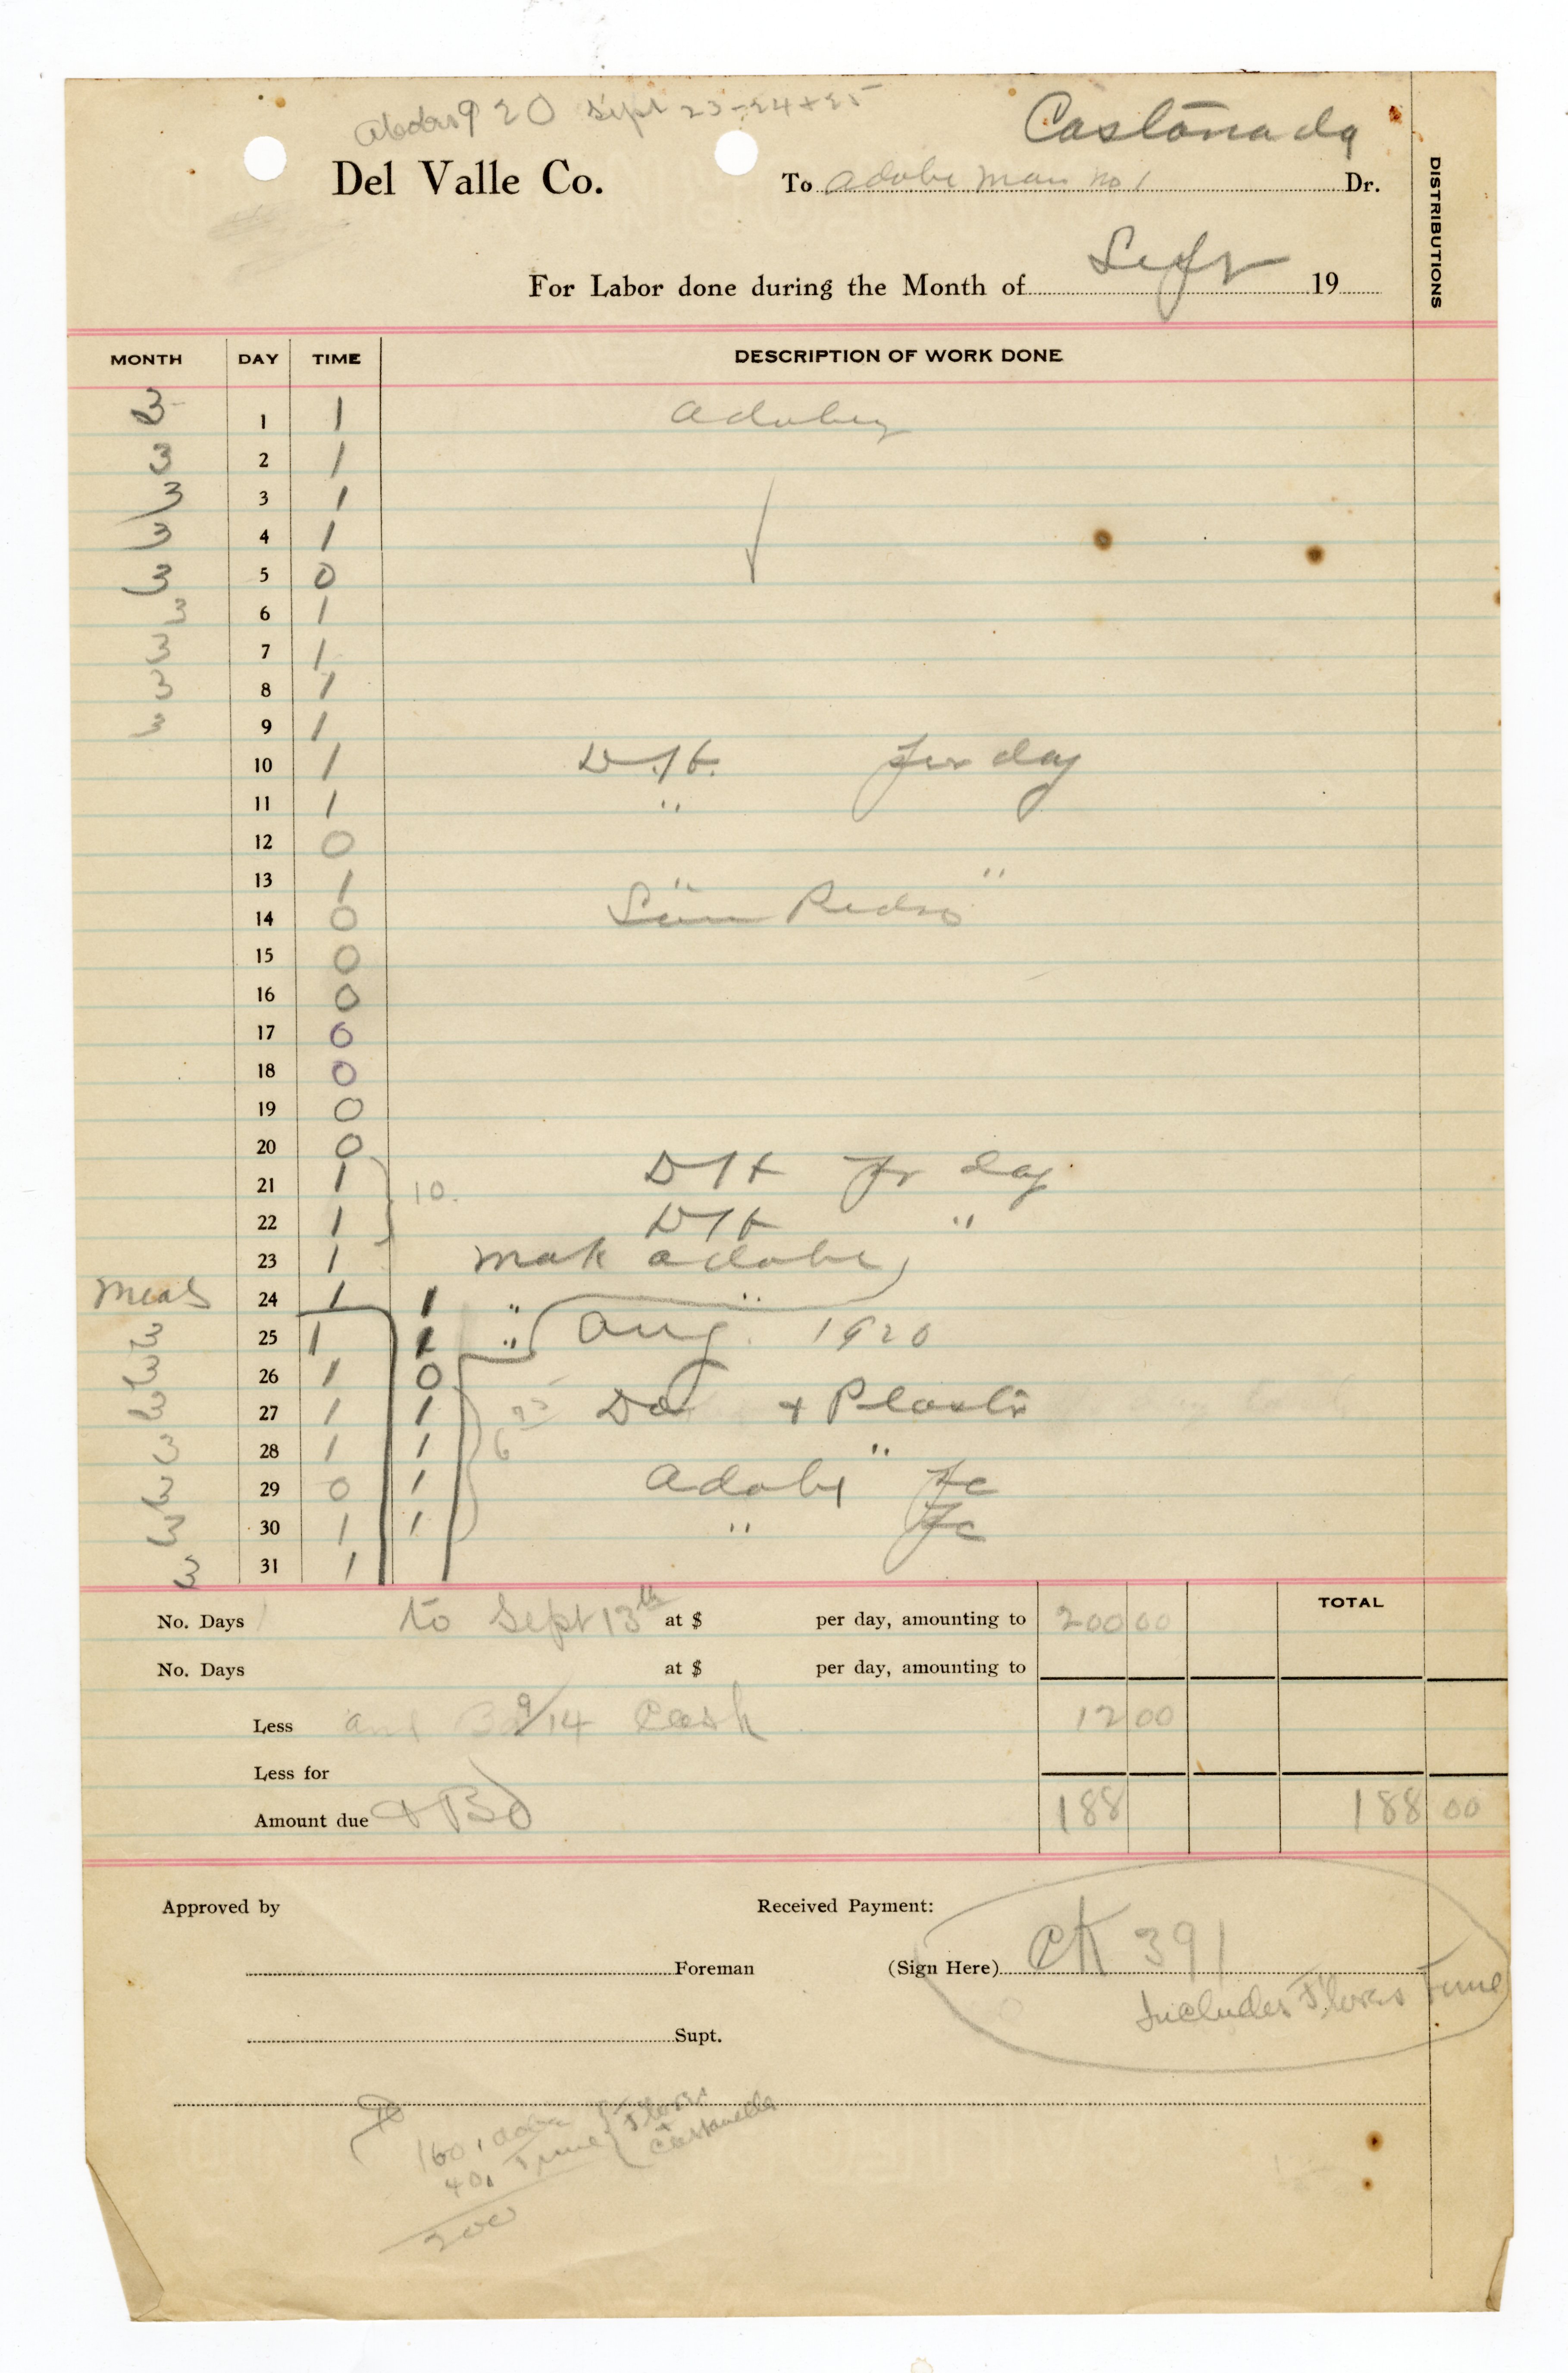 920 Sept 23-24+25
Castonada
Del Valle Co. To adobe man no 1 Dr.
DISTRIBUTIONS
For Labor done during the Month of Sept 19
MONTH DAY TIME DESCRIPTION OF WORK DONE
3 1 1 adobey
3 2 1
3 3 1
3 4 1
3 5 0
3 6 1
3 7 1
3 8 1
3 9 1
10 1 D.1t. for day
11 1 "
12 0
13 1 " "
14 0 San Pedro
15 0
16 0
17 0
18 0
19 0
20 0
21 1 10. D1t for day
22 1 D1t "
23 1 mak adobe
meals 24 1 1 " "
3 25 1 1 " Aug. 1920
3 26 1 0
3 27 1 1 Do + Plastr
3 28 1 1 6 "
3 29 0 1 adoby Fc
3 30 1 1 " Fc
3 31 1
No. Days to Sept 13th at $ per day, amounting to 200 00 TOTAL
No. Days at $ per day, amounting to
Less 9/14 Cash 12 00
Less for
Amount due + Bd 188 188 00
Approved by Received Payment:
Foreman (Sign Here) CK 391
Includes Flores Time
Supt.
160, Flores
40, Time + Castaneda
200